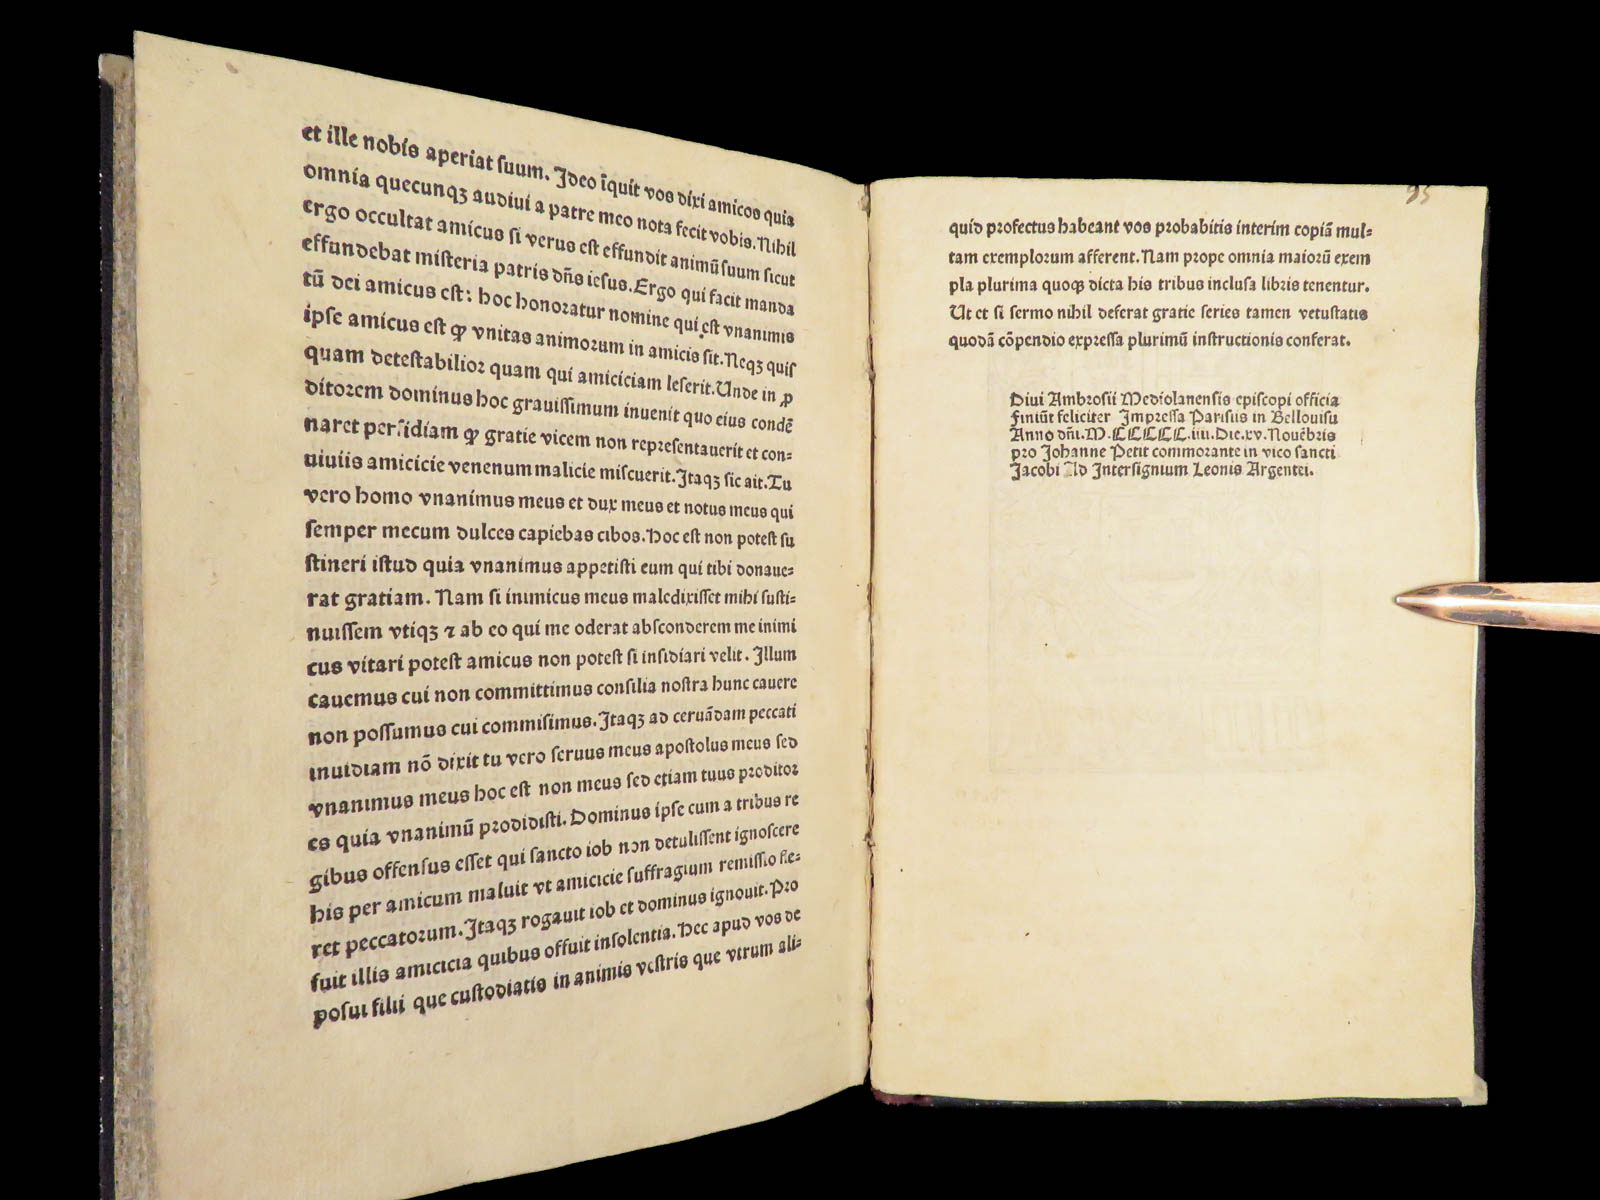 et ille nobis aperiat ſuum. Ideo īquit vos dixi amicos quia
omnia quecunqꝫ audiui a patre meo nota fecit vobis. Nihil
ergo occultat amicus ſi verus eſt effundit animū ſuum ſicut
effundebat miſteria patris dn̄s ieſus. Ergo qui facit manda
tū dei amicus eſt: hoc honoratur nomine qui eſt vnanimis
ipſe amicus eſt ꝙ vnitas animorum in amicis ſit. Neqꝫ quiſ
quam deteſtabilior quam qui amiciciam leſerit. Unde in ꝓ
ditorem dominus hoc grauiſſimum inuenit quo eius condē
naret perfidiam ꝙ gratie vicem non repreſentauerit et con⸗
uiuiis amicicie venenum malicie miſcuerit. Itaqꝫ ſic ait. Tu
vero homo vnanimus meus et dux meus et notus meus qui
ſemper mecum dulces capiebas cibos. Hoc eſt non poteſt ſu
ſtineri iſtud quia vnanimus appetiſti eum qui tibi donaue⸗
rat gratiam. Nam ſi inimicus meus maledixiſſet mihi ſuſti⸗
nuiſſem vtiqꝫ ⁊ ab eo qui me oderat abſconderem me inimi
cus vitari poteſt amicus non poteſt ſi inſidiari velit. Illum
cauemus cui non committimus conſilia noſtra hunc cauere
non poſſumus cui commiſimus. Itaqꝫ ad ceruādam peccati
inuidiam nō dixit tu vero ſeruus meus apoſtolus meus ſed
vnanimus meus hoc eſt non meus ſed etiam tuus proditor
es quia vnanimū prodidiſti. Dominus ipſe cum a tribus re
gibus offenſus eſſet qui ſancto iob non detuliſſent ignoſcere
his per amicum maluit vt amicicie ſuffragium remiſſio fie⸗
ret peccatorum. Itaqꝫ rogauit iob et dominus ignouit. Pro
fuit illis amicicia quibus offuit inſolentia. Hec apud vos de
poſui filii que cuſtodiatis in animis veſtris que vtrum ali⸗
95
quid profectus habeant vos probabitis interim copiā mul⸗
tam exemplorum afferent. Nam prope omnia maiorū exem
pla plurima quoqꝫ dicta his tribus incluſa libris tenentur.
Ut et ſi ſermo nihil deferat gratie ſeries tamen vetuſtatis
quodā cōpendio expreſſa plurimū inſtructionis conferat.
Diui Ambroſii Mediolanenſis epiſcopi officia
finiūt feliciter Impreſſa Pariſius in Bellouiſu
Anno dn̄i. M.CCCCC.iiii. Die.xv. Nouēbris
pro Johanne Petit commorante in vico ſancti
Jacobi Ad Interſignium Leonis Argentei.